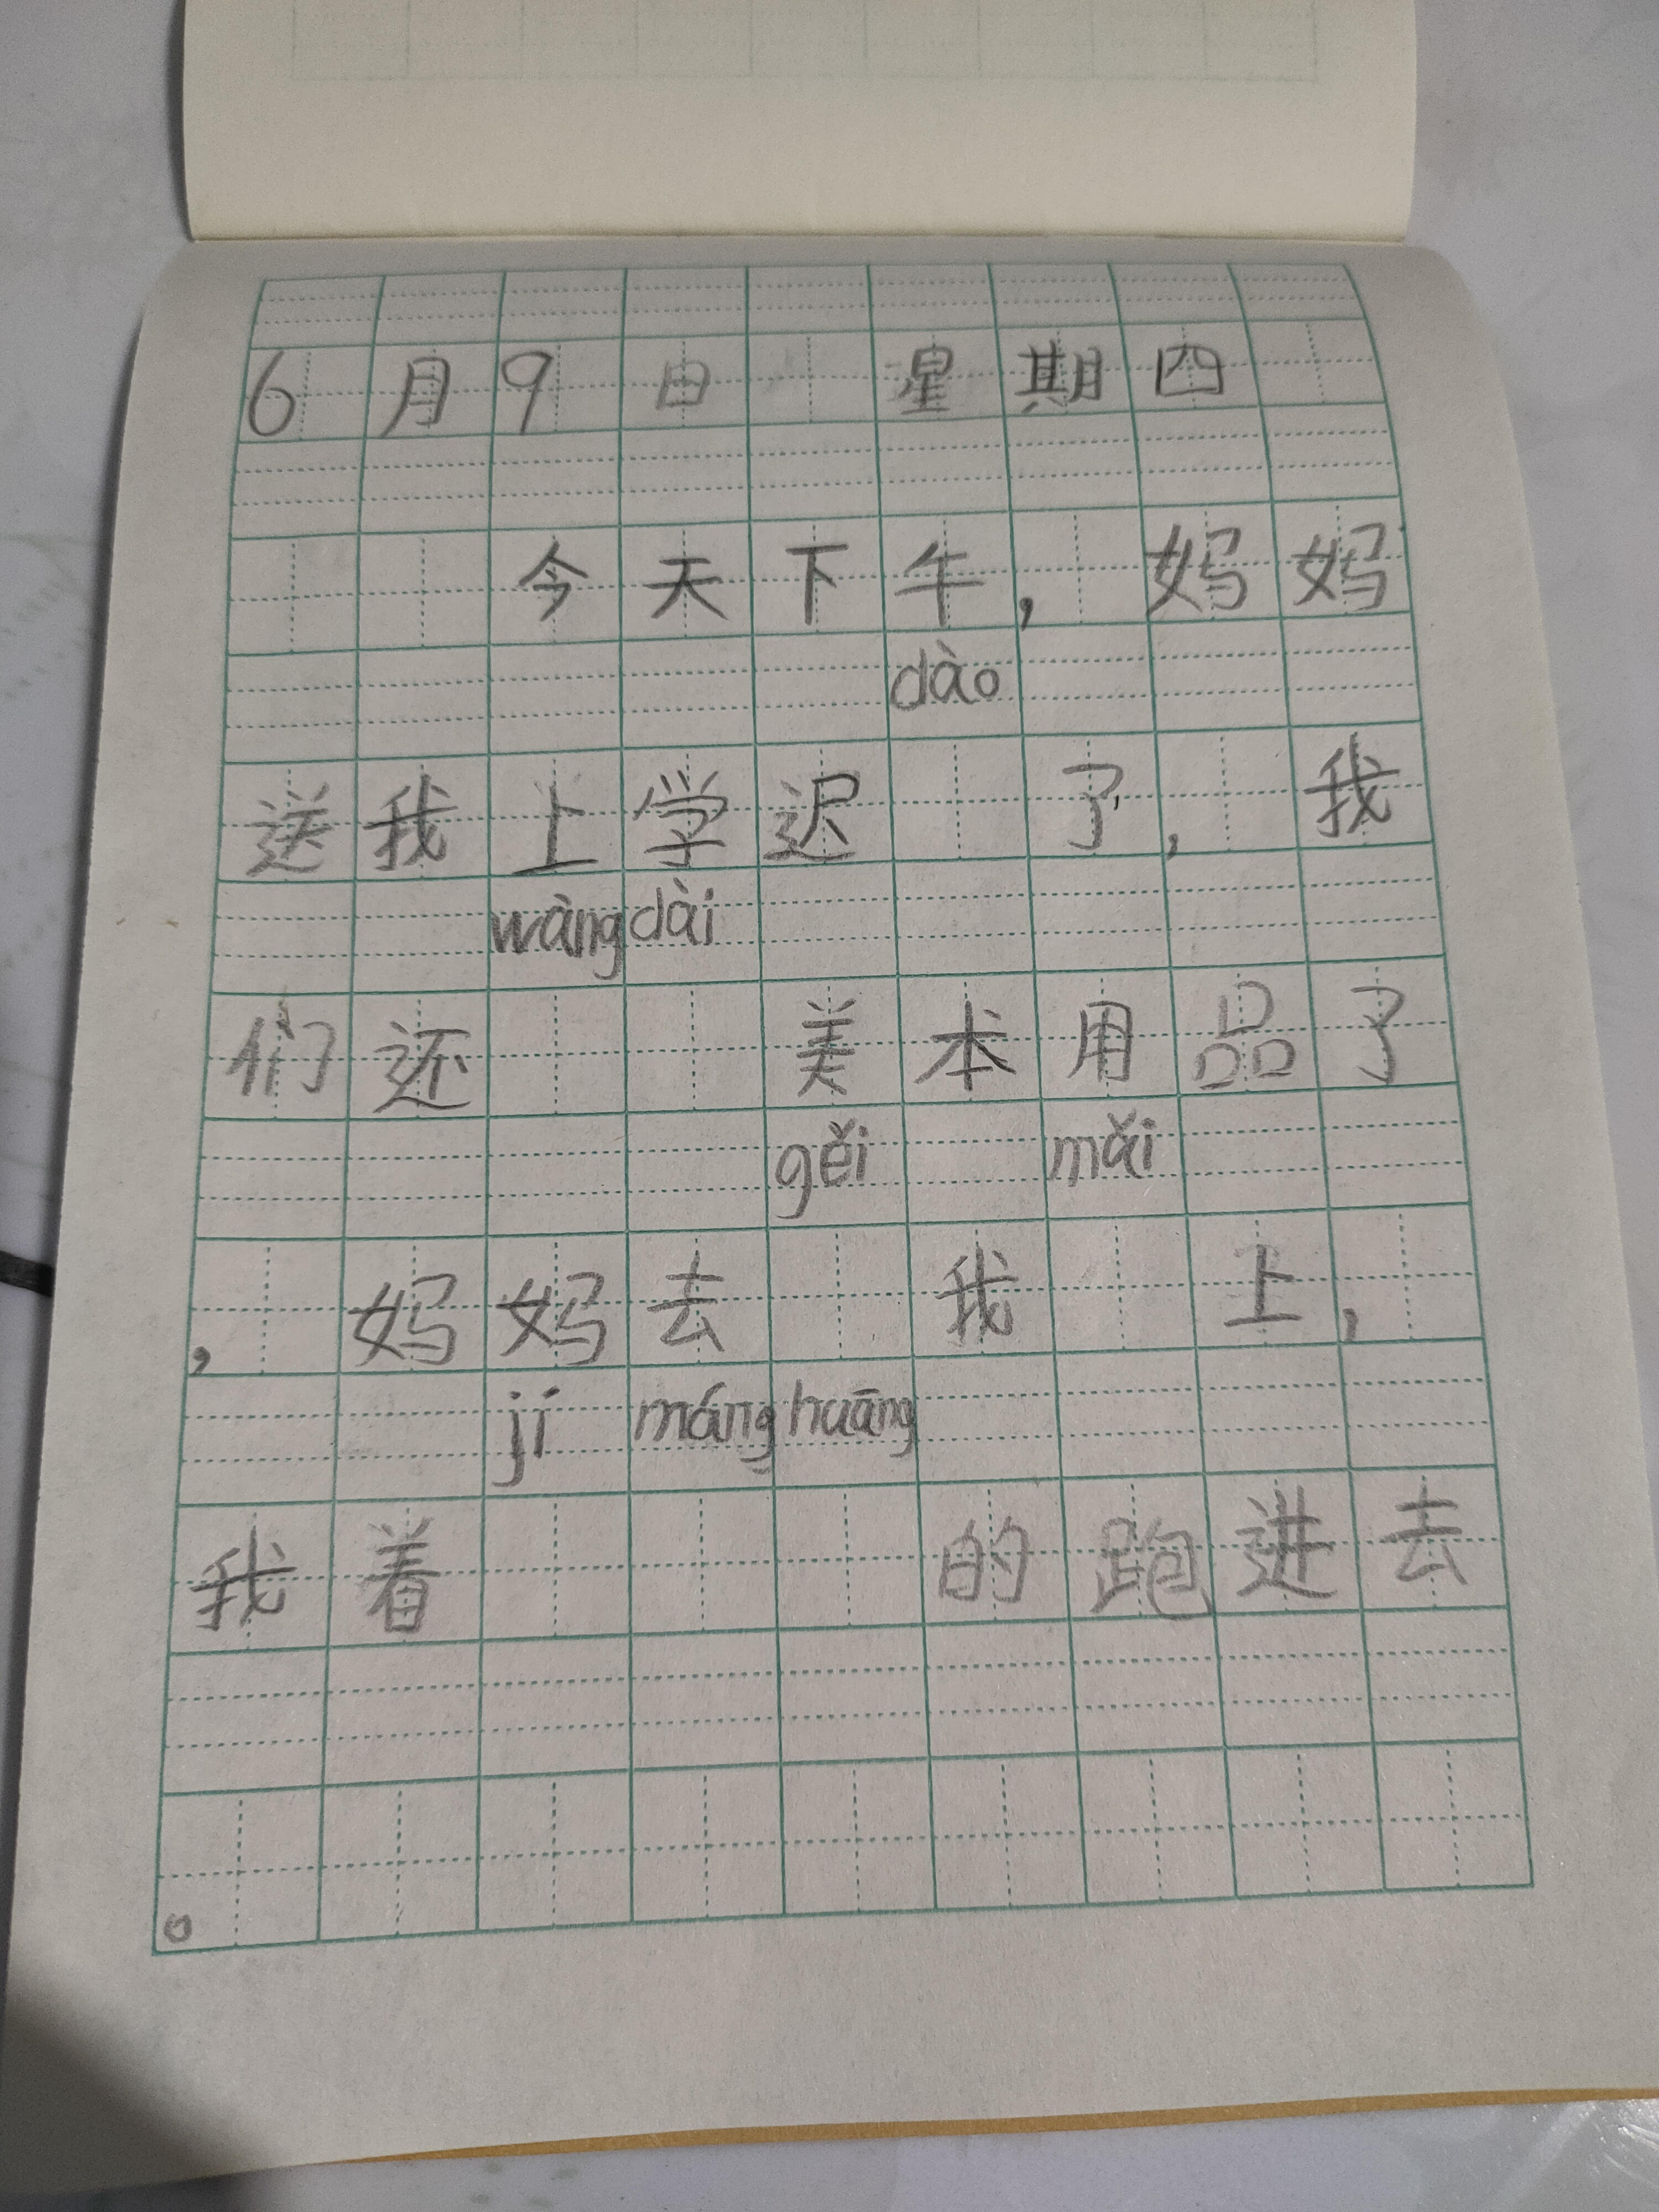 6月9日 星期四
今天下午，妈妈
dào
送我上学迟 了，我
wàng dài
们还 美术用品了
gěi mǎi
，妈妈去 我 上，
jí máng huāng
我着 的跑进去
。